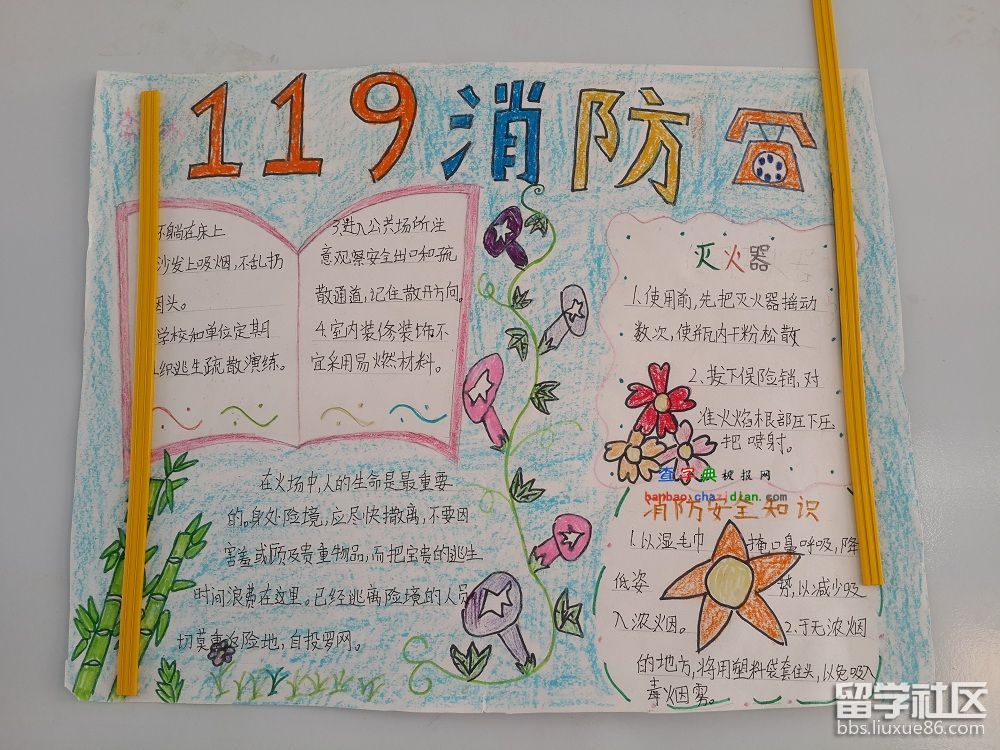 119消防
不躺在床上
沙发上吸烟,不乱扔
因头。
学校和单位定期
织逃生疏散演练。
3.进入公共场所注
意观察安全出口和疏
散通道,记住散开方向。
4.室内装修装饰不
宜采用易燃材料。
灭火器
1.使用前,先把灭火器摇动
数次,使瓶内干粉松散
2、拔下保险销,对
准火焰根部压下压
把喷射。
查字典板报网
banbao.chazidian.com
在火场中,人的生命是最重要
的。身处险境,应尽快撤离,不要因
害羞或顾及贵重物品,而把宝贵的逃生
时间浪费在这里。已经逃离险境的人员
切莫重返险地,自投罗网。
消防安全知识
1.以湿毛巾 掩口鼻呼吸,降
低姿 势,以减少吸
入浓烟。 2、于无浓烟
的地方,将用塑料袋套住头,以免吸入
毒烟雾。
留学社区
bbs.liuxue86.com